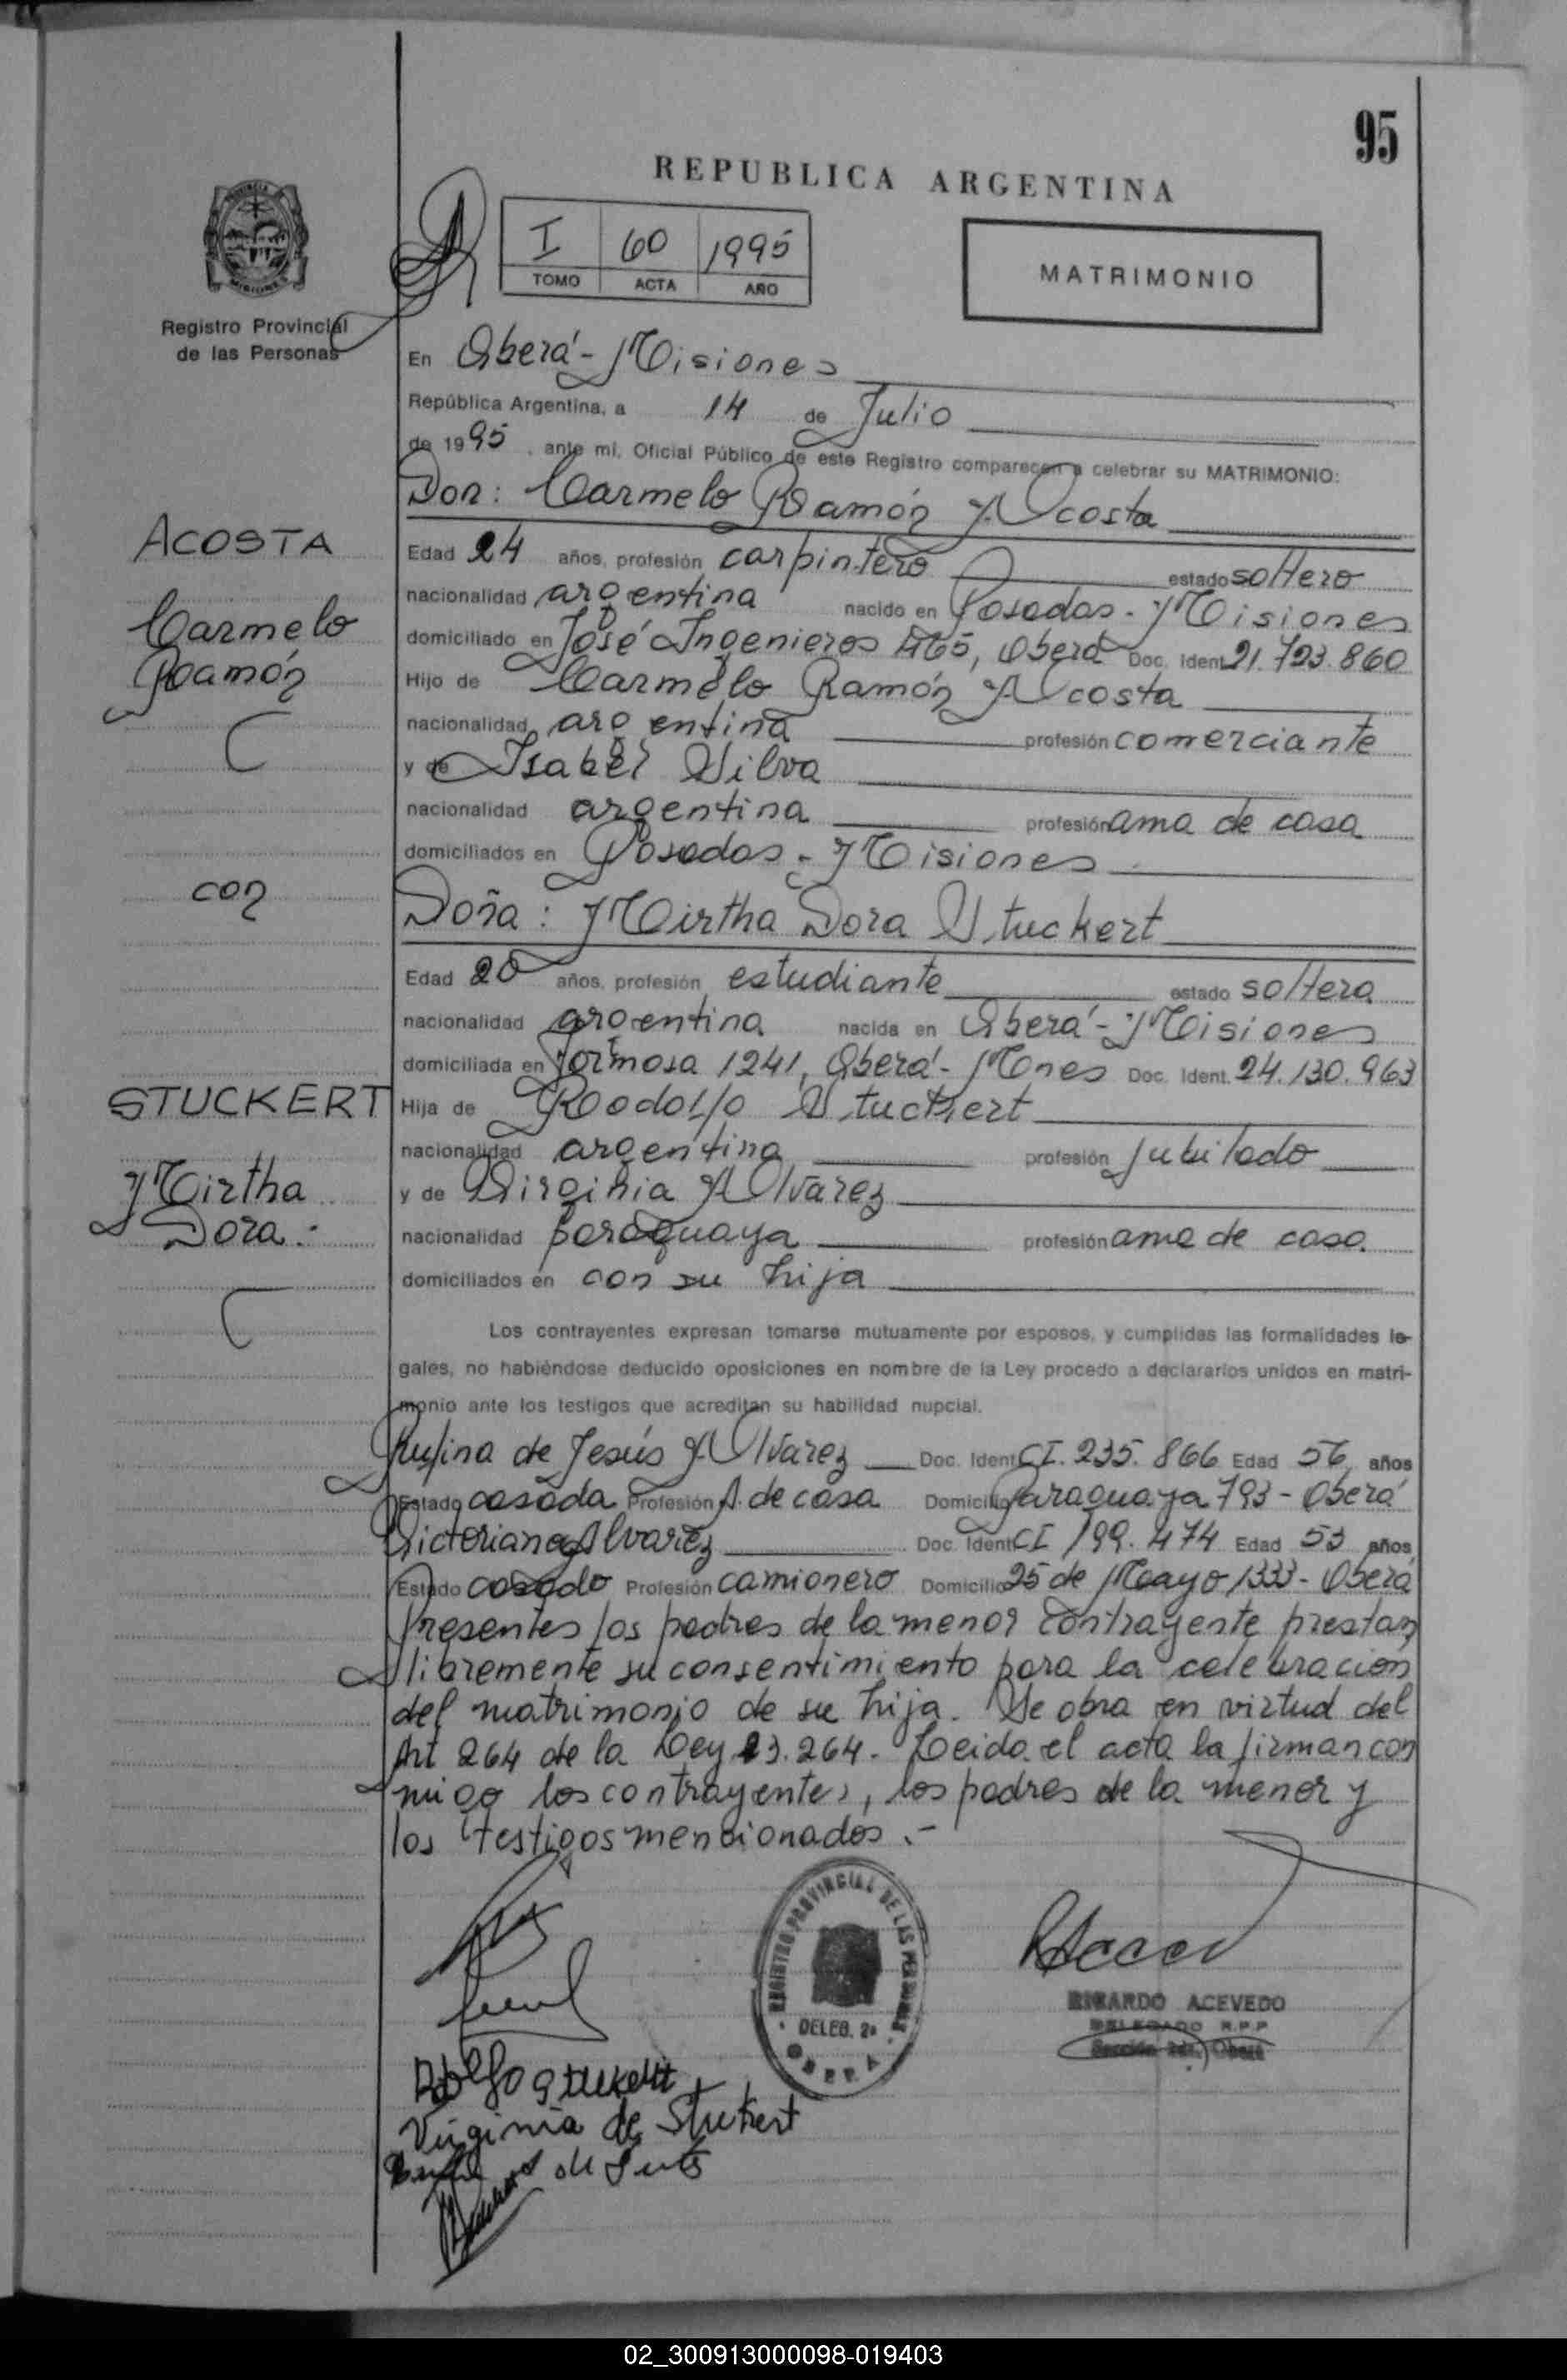 95
REPUBLICA ARGENTINA
I 60 1995
TOMO ACTA AÑO
MATRIMONIO
Registro Provincial
de las Personas
En Oberá - Misiones
República Argentina, a 14 de Julio
de 1995, ante mí, Oficial Público de este Registro comparecen a celebrar su MATRIMONIO:
Don: Carmelo Ramón Acosta
ACOSTA
Edad 24 años, profesión carpintero estado soltero
nacionalidad argentina nacido en Posadas - Misiones
Carmelo
domiciliado en José Ingenieros 465, Oberá Doc. Ident. 21.723.860
Ramón
Hijo de Carmelo Ramón Acosta
nacionalidad argentina profesión comerciante
y de Isabel Silva
nacionalidad argentina profesión ama de casa
domiciliados en Posadas - Misiones
con
Doña: Mirtha Dora Stuckert
Edad 20 años, profesión estudiante estado soltera
nacionalidad argentina nacida en Oberá - Misiones
domiciliada en Formosa 1241, Oberá - Mnes Doc. Ident. 24.130.963
STUCKERT
Hija de Rodolfo Stuckert
nacionalidad argentina profesión jubilado
Mirtha
y de Virginia Alvarez
Dora.
nacionalidad paraguaya profesión ama de casa
domiciliados en con su hija
Los contrayentes expresan tomarse mutuamente por esposos, y cumplidas las formalidades le-
gales, no habiéndose deducido oposiciones en nombre de la Ley procedo a declararlos unidos en matri-
monio ante los testigos que acreditan su habilidad nupcial.
Rufina de Jesús Alvarez Doc. Ident. CI. 235.866 Edad 56 años
Estado casada Profesión A. de casa Domicilio Paraguaya 793 - Oberá
Victoriano Alvarez Doc. Ident. CI 199.474 Edad 53 años
Estado casado Profesión camionero Domicilio 25 de Mayo 1333 - Oberá
Presentes los padres de la menor contrayente prestan
libremente su consentimiento para la celebración
del matrimonio de su hija. Se obra en virtud del
Art 264 de la Ley 23.264. Leida el acta la firman con
migo los contrayentes, los padres de la menor y
los testigos mencionados.-
REGISTRO PROVINCIAL DE LAS PERSONAS
DELEG. 2ª
OBERA
RICARDO ACEVEDO
DELEGADO R.P.P
Sección 2da. Oberá
Virginia de Stukert
02_300913000098-019403